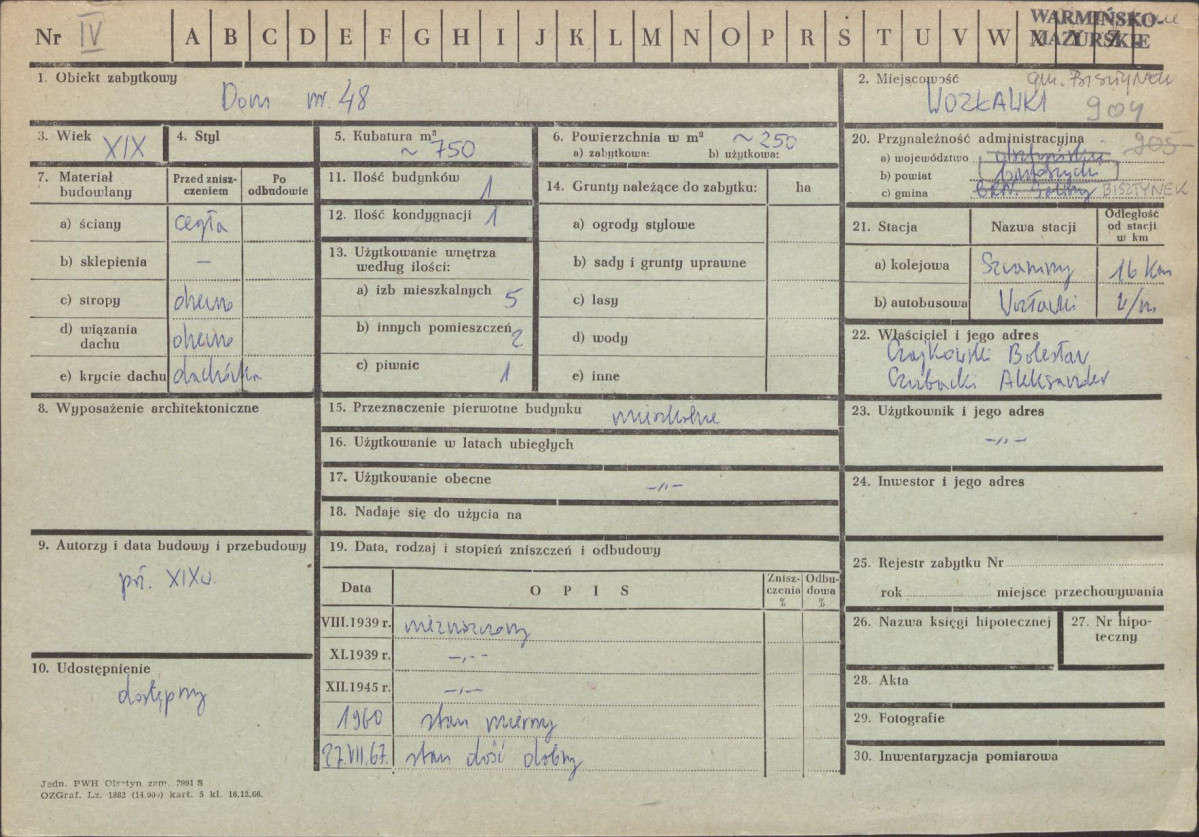 Nr IV A B C D E F G H I J K L M N O P R S T U V W X Y Z Ż
WARMIŃSKO-
MAZURSKIE
1. Obiekt zabytkowy
Dom nr. 48
2. Miejscowość gm. BISZTYNEK
WOZŁAWKI 904
905
3. Wiek XIX
4. Styl
5. Kubatura m³
~ 750
6. Powierzchnia w m² ~ 250
a) zabytkowa: b) użytkowa:
20. Przynależność administracyjna
a) województwo olsztyńskie
b) powiat
c) gmina BISZTYNEK
7. Materiał budowlany
Przed zniszczeniem
Po odbudowie
a) ściany cegła
b) sklepienia –
c) stropy drewno
d) wiązania dachu drewno
e) krycie dachu dachówka
11. Ilość budynków 1
12. Ilość kondygnacji 1
13. Użytkowanie wnętrza według ilości:
a) izb mieszkalnych 5
b) innych pomieszczeń 2
c) piwnic 1
14. Grunty należące do zabytku: ha
a) ogrody stylowe
b) sady i grunty uprawne
c) lasy
d) wody
e) inne
21. Stacja Nazwa stacji Odległość od stacji w km
a) kolejowa 16 km
b) autobusowa
22. Właściciel i jego adres
Czajkowski Bolesław
Czubacki Aleksander
8. Wyposażenie architektoniczne
15. Przeznaczenie pierwotne budynku mieszkalne
16. Użytkowanie w latach ubiegłych
17. Użytkowanie obecne -„-
18. Nadaje się do użycia na
23. Użytkownik i jego adres
-„-
24. Inwestor i jego adres
9. Autorzy i data budowy i przebudowy
XIX w.
10. Udostępnienie
dostępny
19. Data, rodzaj i stopień zniszczeń i odbudowy
Data OPIS Zniszczenia % Odbudowa %
VIII.1939 r. niezniszczony
XI.1939 r. -„-
XII.1945 r. -„-
1960 stan mierny
27.VII.67. stan dość dobry
25. Rejestr zabytku Nr
rok miejsce przechowywania
26. Nazwa księgi hipotecznej
27. Nr hipoteczny
28. Akta
29. Fotografie
30. Inwentaryzacja pomiarowa
Jedn. PWH Olsztyn zam. 7991 S
OZGraf. Lz. 1882 (14.000) kart. 5 kl. 16.12.66.